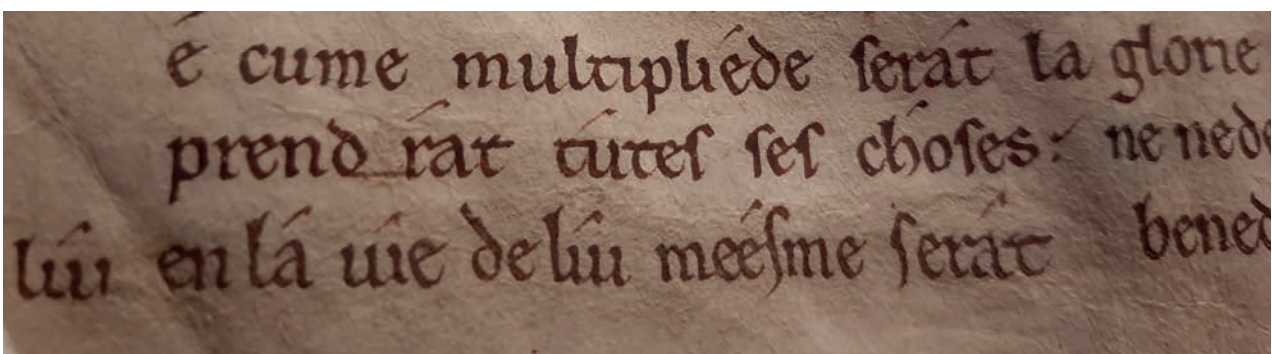 é cume multipliéde serát la glorie
prend rat tútes ses choses: ne nede
lúi en lá uie de lúi meésme serát bened